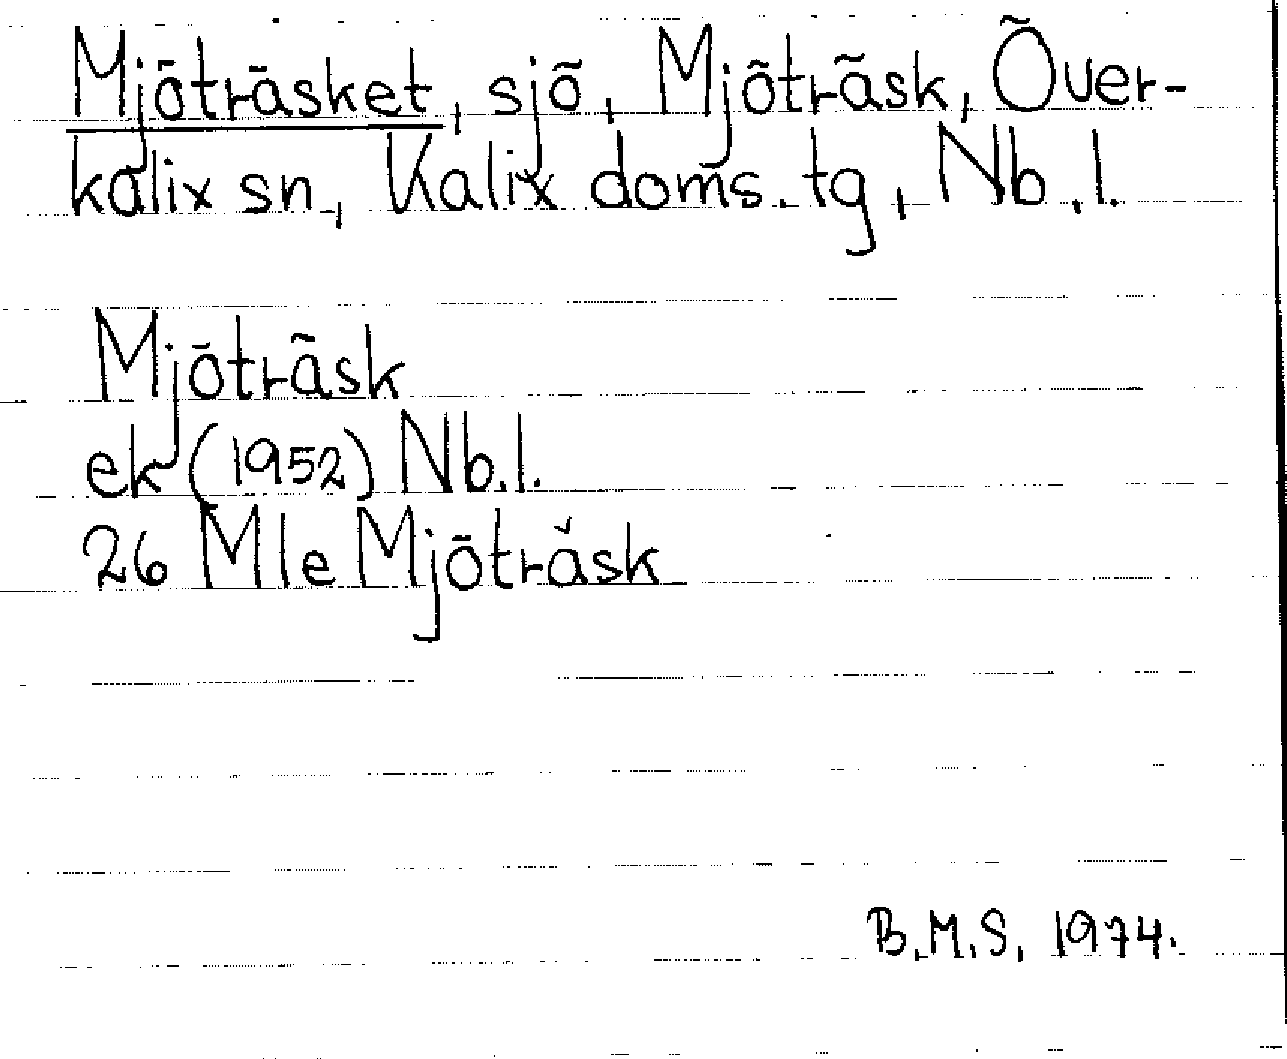 Mjöträsket, sjö, Mjöträsk, Över-
kalix sn, Kalix doms. tg, Nb.l.
Mjöträsk
ek (1952) Nb.l.
26 Mle Mjöträsk
B.M.S. 1974.